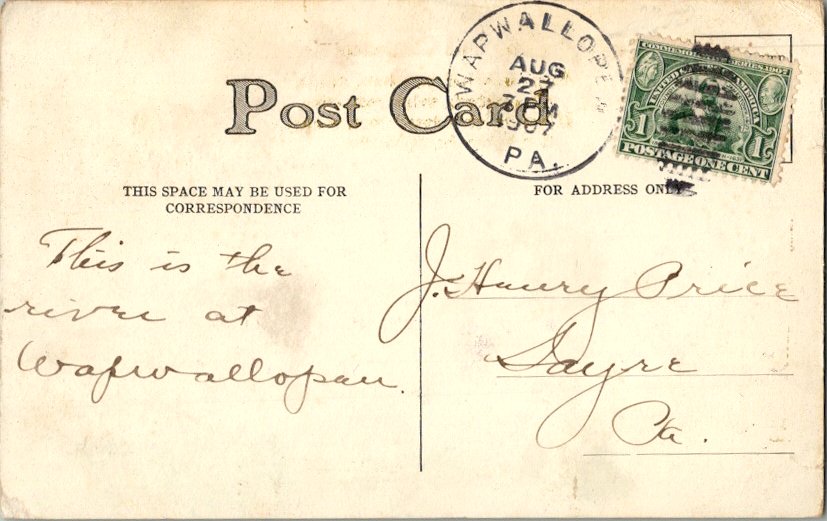 Post Card
WAPWALLOPEN
AUG
27
7 PM
1907
PA.
COMMEMORATIVE SERIES 1907
UNITED STATES OF AMERICA
1 1
POSTAGE ONE CENT
THIS SPACE MAY BE USED FOR
CORRESPONDENCE
FOR ADDRESS ONLY
This is the
river at
Wapwallopen.
J. Henry Price
Sayre
Pa.